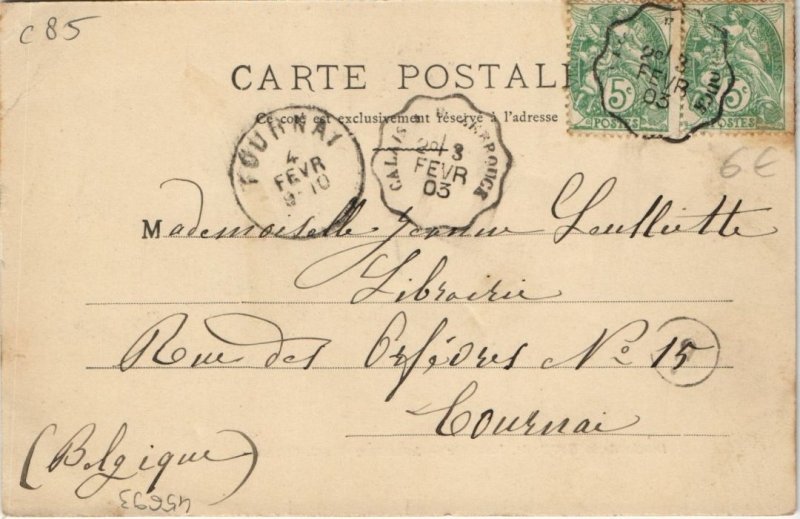 c 85
5c POSTES
5c POSTES
CARTE POSTALE
Ce coté est exclusivement réservé à l'adresse
TOURNAI
4
FEVR
9-10
CALAIS
3
FEVR
03
3
FEVR
03
6€
Mademoiselle Jeanne
Librairie
Rue des Orfèvres No 15
Tournai
(Belgique)
45693